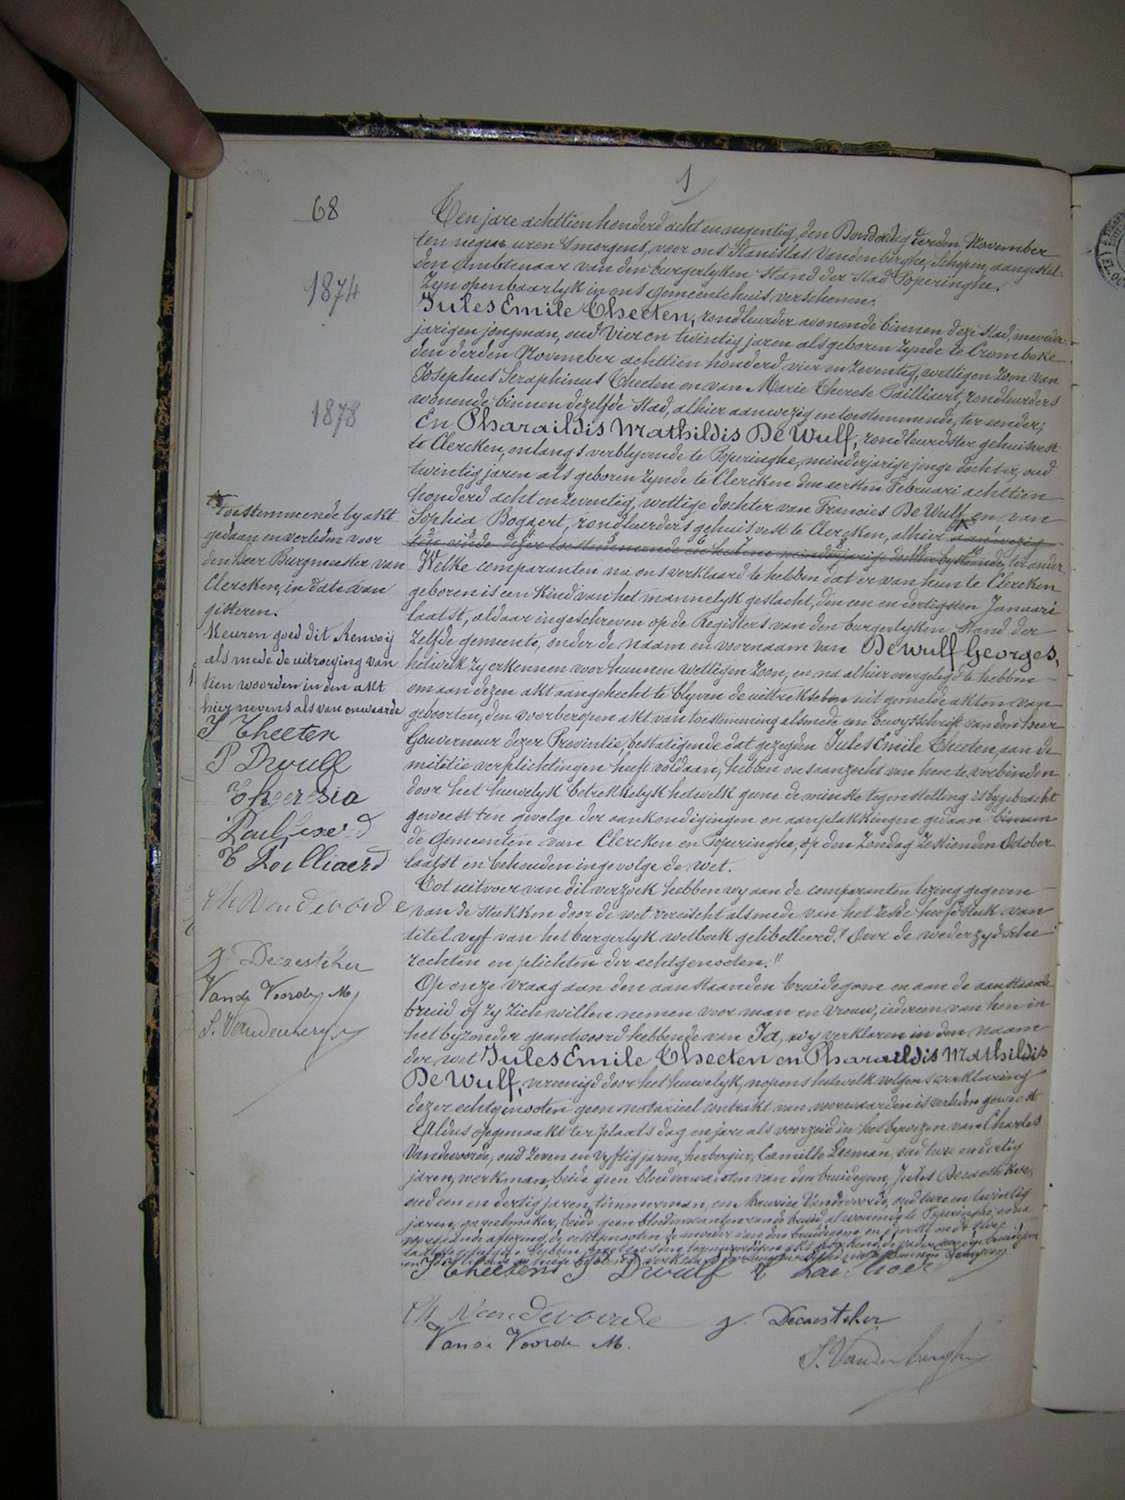 1
68
1874
1878
Ten jare achttien honderd acht en negentig, den Donderdag derden November
ten negen uren 's morgens, voor ons Stanislas Vandenberghe, Schepen, aangestel-
den Ambtenaar van den burgerlyken Stand der Stad Poperinghe,
zyn openbaarlyk in ons gemeentehuis verschenen.
Jules Emile Cheeten, rondleurder wonende binnen deze stad, meerder-
jarigen jongman, oud vier en twintig jaren als geboren zynde te Crombeke
den derden November achttien honderd vier en zeventig, wettigen zoon van
Josephus Seraphinus Cheeten en van Marie Therese Pailliaert, rondleurders
wonende binnen dezelfde stad, alhier aanwezig en toestemmende, ter eender;
En Pharaildis Mathildis De Wulf, rondleurdster gehuisvest
te Clercken, onlangs verblyvende te Poperinghe, minderjarige jonge dochter, oud
twintig jaren als geboren zynde te Clercken den Februari achttien
honderd acht en zeventig, wettige dochter van Francies De Wulf en van
Sophia Bogaert, rondleurders gehuisvest te Clercken, alhier aanwezig
ter ander
Welke comparanten na ons verklaard te hebben dat er van hun te Clercken
geboren is een kind van het mannelyk geslacht, den een en dertigsten Januari
laatst, aldaar ingeschreven op de Registers van den burgerlyken Stand der
zelfde gemeente, onder de naam en voornaam van De Wulf Georges,
hetwelk zy erkennen voor hunnen wettigen zoon, en na alhier overgelegd te hebben
om aan dezen akt aangehecht te blyven de uittreksels uit gemelde akten van
geboorten, den voorberoepen akt van toestemming alsmede een bewysschrift van den heer
Gouverneur dezer Provintie, bestatigende dat gezegden Jules Emile Cheeten, aan de
militie verplichtingen heeft voldaan, hebben ons aanzocht van hen te verbinden
door het huwelyk betrekkelyk hetwelk geene de minste tegenstelling is bygebracht
geweest ten gevolge der aankondigingen en aanplakkingen gedaan binnen
de Gemeenten van Clercken en Poperinghe, op den Zondag zestienden October
laatst en behouden ingevolge de wet.
Tot uitvoer van dit verzoek hebben wy aan de comparanten lezing gegeven
van de stukken door de wet vereischt alsmede van het zesde hoofdstuk van
titel vyf van het burgerlyk wetboek getitelleerd "Over de wederzydsche
rechten en plichten der echtgenooten."
Op onze vraag aan den aanstaanden bruidegom en aan de aanstaande
bruid of zy zich willen nemen voor man en vrouw, iedereen van hen in
het byzonder geantwoord hebbende van Ja, wy verklaren in den naam
der wet Jules Emile Cheeten en Pharaildis Mathildis
De Wulf, vereenigd door het huwelyk, nopens hetwelk volgens verklaring
dezer echtgenooten geen notarieel contrakt van voorwaarden is verleden geweest
Aldus opgemaakt ter plaats dag en jare als voorzeid in het bywezen van Charles
Vandevoorde, oud zeven en vyftig jaren, herbergier, Camille Leeman, oud twee en dertig
jaren, werkman, beide geen bloedverwanten van den bruidegom, Jules Decaesteker,
oud een en dertig jaren, timmerman, en Maurice Vandevoorde, oud twee en twintig
jaren, beide geen bloedverwanten van de bruid, al woonende te Poperinghe
J Cheeten P Dwulf
Ch Vandevoorde J. Decaesteker
Van de Voorde M.
S. Vandenberghe
Toestemmende by akt
gedaan en verleden voor
den heer Burgmeester van
Clercken, in date van
gisteren.
Keuren goed dit Renvooi
als mede de uitroeying van
tien woorden in den akt
hier nevens als van onwaarde
J Cheeten
P Dwulf
Theresia
T Pailliaerd
Ch Vandevoorde
J. Decaesteker
Van de Voorde M
S. Vandenberghe